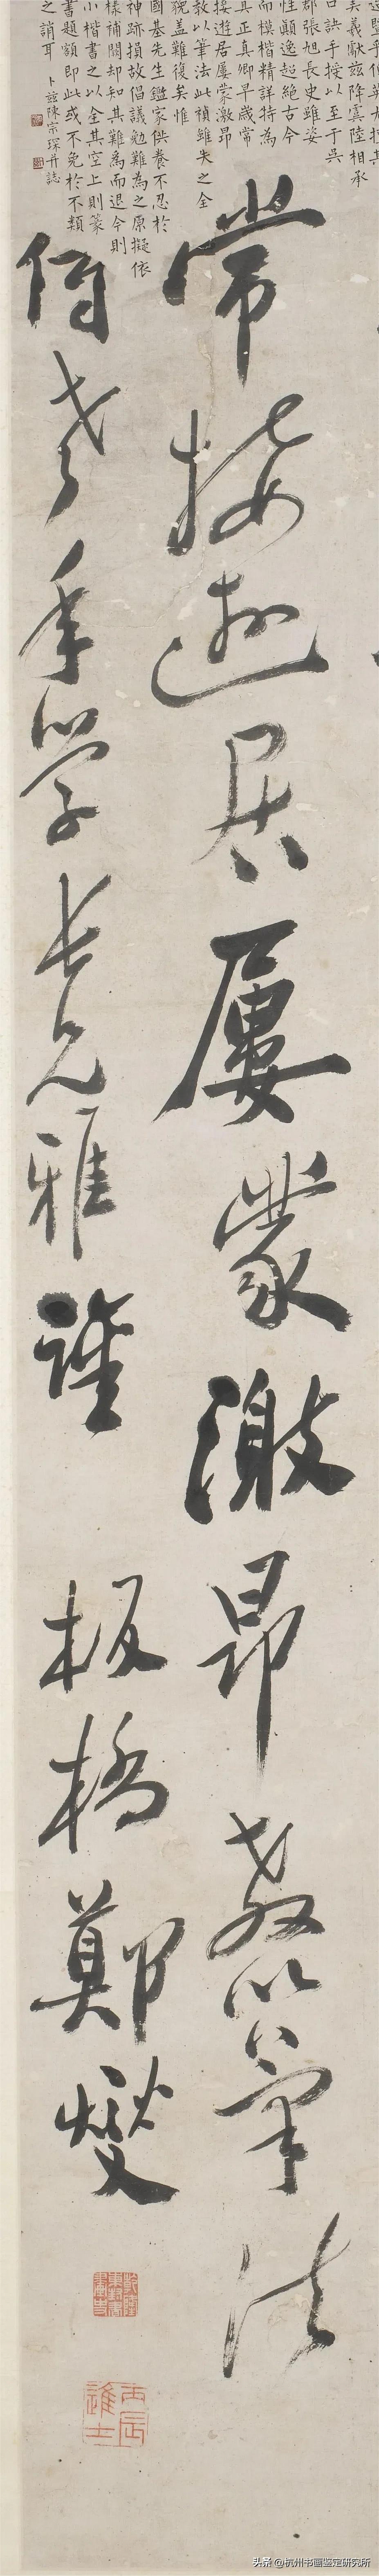 美羲獻茲降虞陸相承
口訣手授以至于吳
郡張旭長史雖姿
性顛逸超絕古今
而模楷精詳特為
真正真卿早歲常
接遊居屢蒙激昂
教以筆法此禎雖失之全
貌蓋難復矣惟
國基先生鑑家供養不忍於
神跡損故倡議勉難為之原擬依
樣補闕却知其難為而退今則
小楷書之以全其空上則篆
書題額即此或不免於不類
之誚耳 卜茲陳宗琛幷誌
常接遊居屢蒙激昂教以筆法
老年學長兄雅證 板橋鄭燮
乾隆東封書畫史
丙辰進士
头条 @杭州书画鉴定研究所